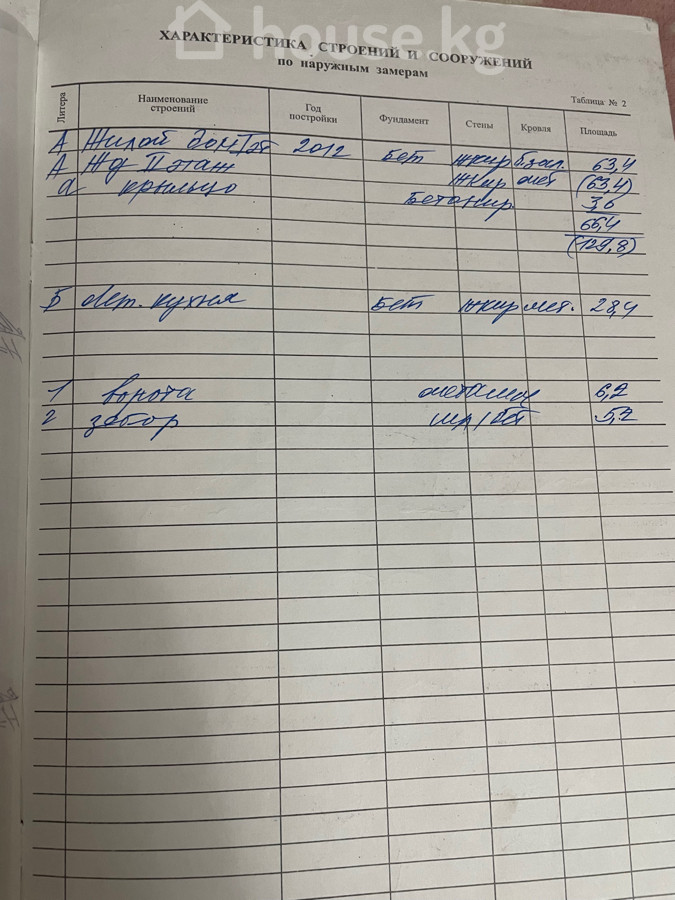 house.kg
ХАРАКТЕРИСТИКА СТРОЕНИЙ И СООРУЖЕНИЙ
по наружным замерам
Таблица № 2
Литера Наименование строений Год постройки Фундамент Стены Кровля Площадь
А Жилой дом I эт 2012 бет жкир б.зал. 63,4
А Жд II этаж жкир мет (63,4)
а крыльцо Бет жкир 3,6
66,4
(129,8)
Б лет. кухня бет жкир мет. 28,4
1 ворота металл 6,2
2 забор 5,2